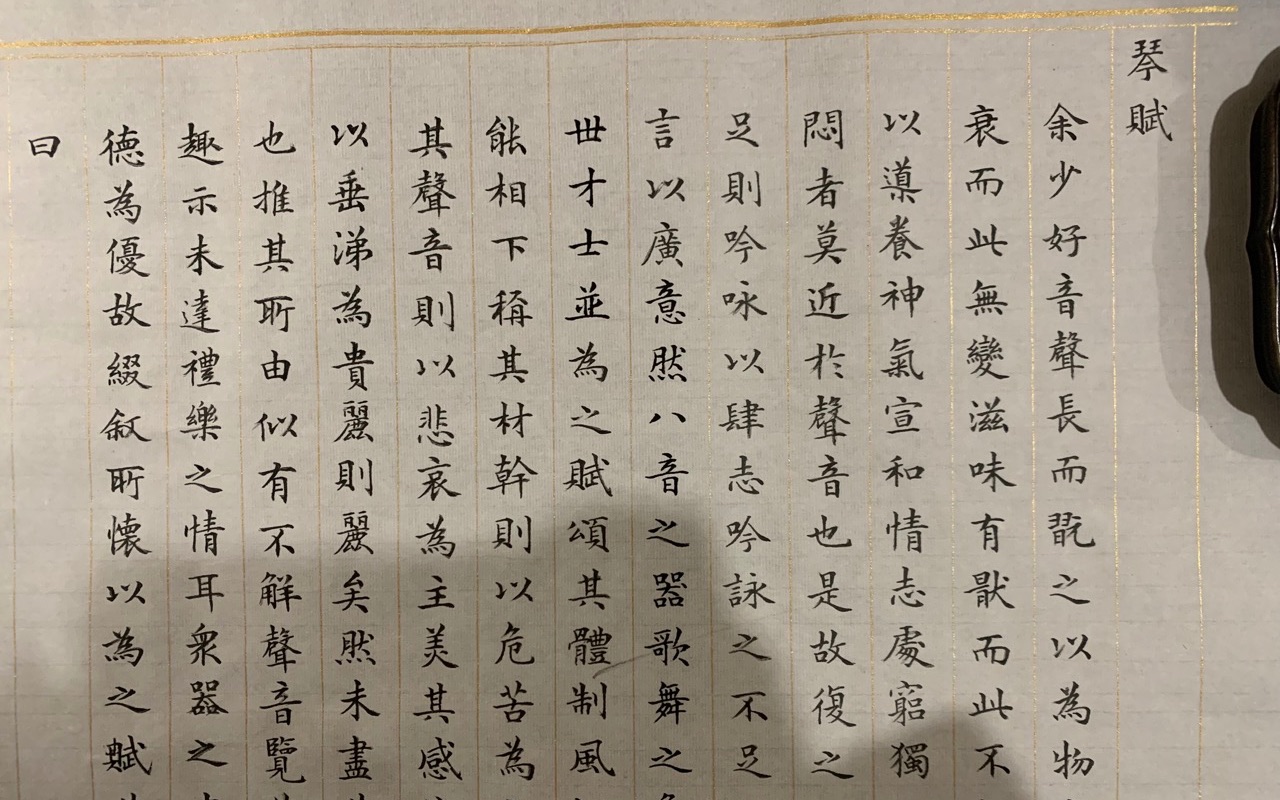 琴賦
余少好音聲長而翫之以為物
衰而此無變滋味有猒而此不
以導養神氣宣和情志處窮獨
悶者莫近於聲音也是故復之
足則吟咏以肆志吟詠之不足
言以廣意然八音之器歌舞之
世才士並為之賦頌其體制風
能相下稱其材幹則以危苦為
其聲音則以悲哀為主美其感
以垂涕為貴麗則麗矣然未盡
也推其所由似有不解聲音覽
趣示未達禮樂之情耳衆器之
德為優故綴叙所懷以為之賦
曰